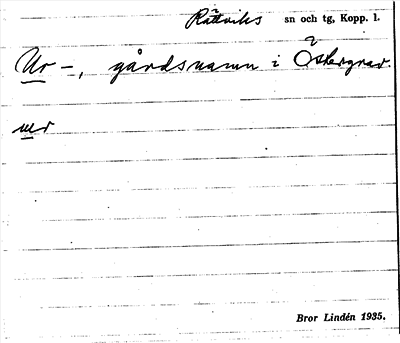 Rättviks sn och tg, Kopp. l.
Ur -, gårdsnamn i Östergrav.
ur
Bror Lindén 1935.